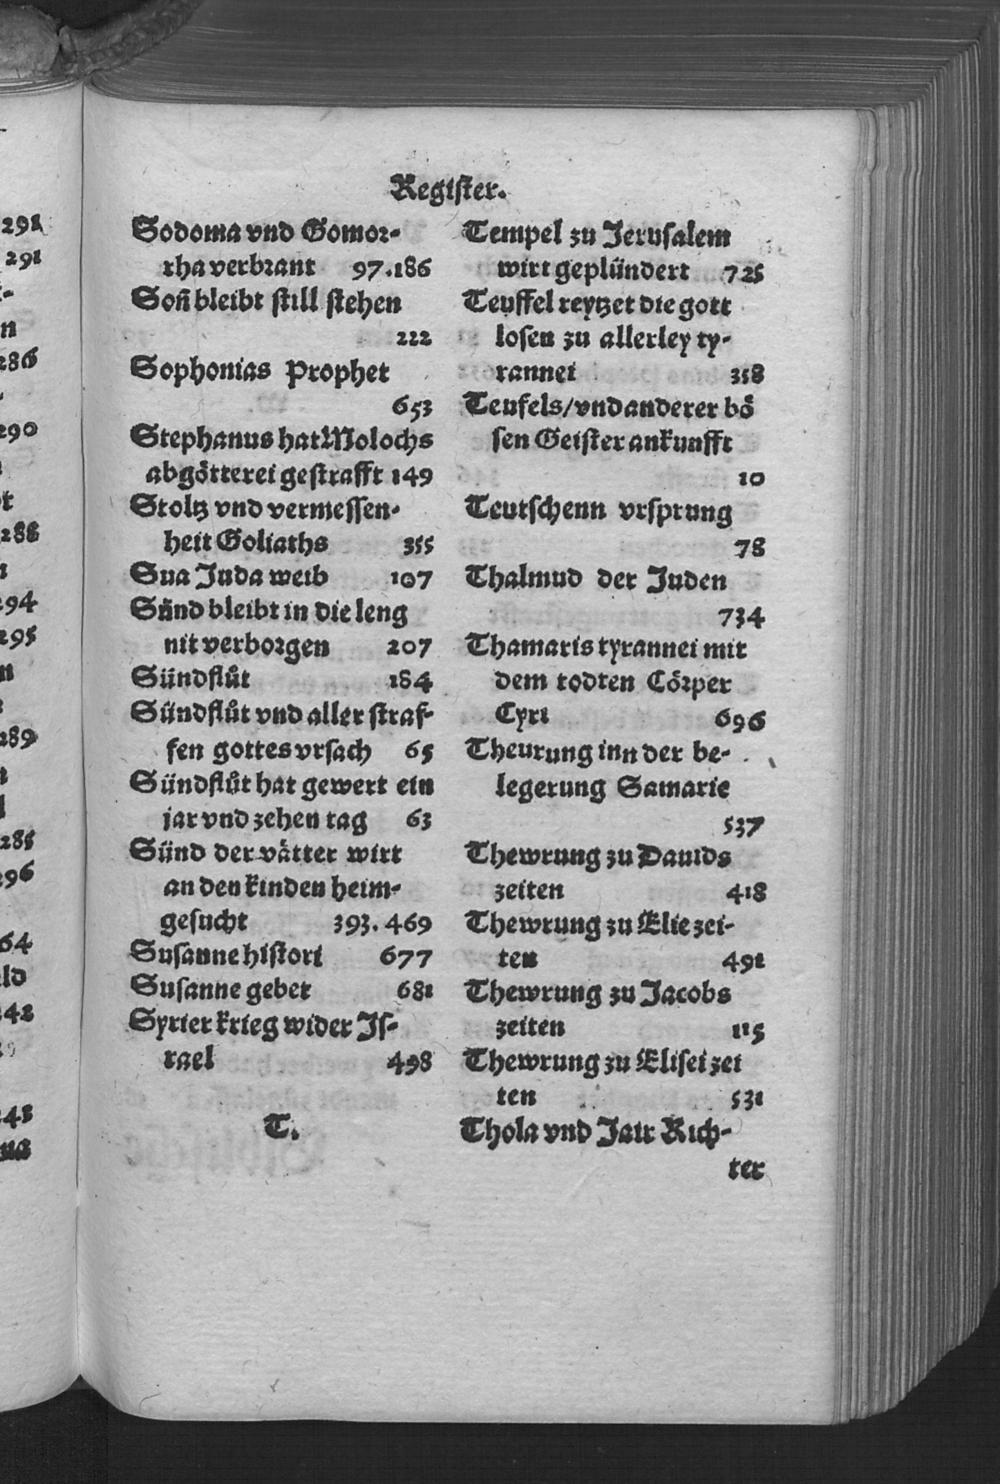 291
291
n
286
290
288
294
295
n
289
285
296
64
ld
242
243
Register.
Sodoma vnd Gomor-
rha verbrant 97.186
Soñ bleibt still stehen
222
Sophonias Prophet
653
Stephanus hat Molochs
abgötterei gestrafft 149
Stoltz vnd vermessen-
heit Goliaths 355
Sua Juda weib 107
Sünd bleibt in die leng
nit verborgen 207
Sündflůt 184
Sündflůt vnd aller straf-
fen gottes vrsach 65
Sündflůt hat gewert ein
jar vnd zehen tag 63
Sünd der vätter wirt
an den kinden heim-
gesucht 393.469
Susanne histori 677
Susanne gebet 681
Syrier krieg wider Js-
rael 498
T.
Tempel zu Jerusalem
wirt geplündert 725
Teuffel reytzet die gott
losen zu allerley ty-
rannei 318
Teufels/vnd anderer bö
sen Geister ankunfft
10
Teutschenn vrsprung
78
Thalmud der Juden
734
Thamaris tyrannei mit
dem todten Cörper
Cyri 696
Theurung inn der be-
legerung Samarie
537
Thewrung zu Dauids
zeiten 418
Thewrung zu Elie zei-
ten 491
Thewrung zu Jacobs
zeiten 115
Thewrung zu Elisei zei
ten 531
Thola vnd Jair Rich-
ter